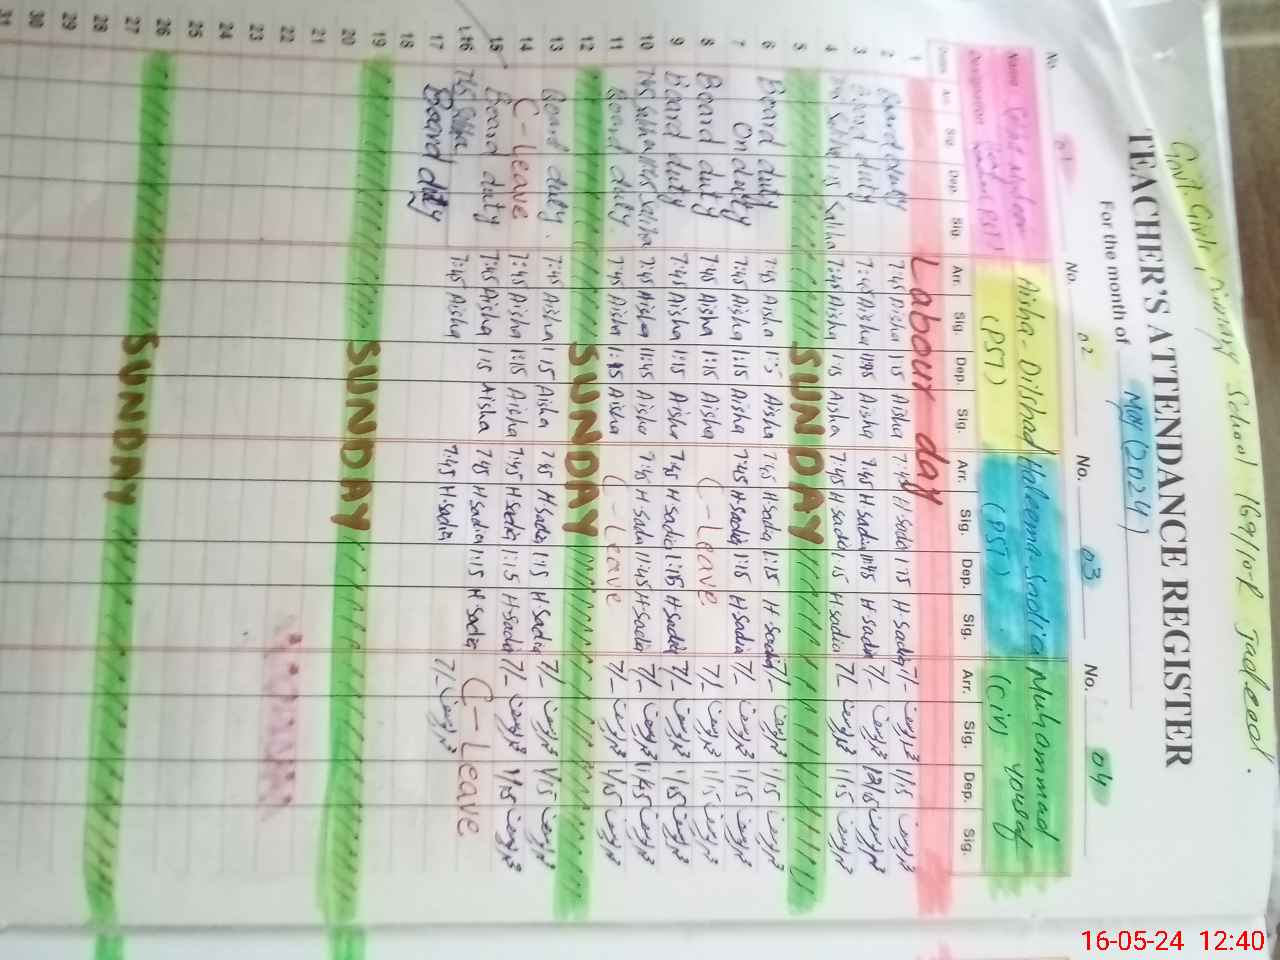 Govt. Girls Primary School 169/10-R Jadeed.
TEACHER'S ATTENDANCE REGISTER
For the month of May (2024)
No. 01 No. 02 No. 03 No. 04
Name Aisha-Dilshad Haleema-Sadia Muhammad
Designation (PST) (PST) (CIV) yousaf
Date Arr. Sig. Dep. Sig. Arr. Sig. Dep. Sig. Arr. Sig. Dep. Sig. Arr. Sig. Dep. Sig.
1 Labour day
2 Board duty 7:45 Aisha 1:15 Aisha 7:45 H sadia 1:15 H-Sadia 7/- 1/15
3 Board duty 7:45 Aisha 11:45 Aisha 7:45 H sadia 11:45 H-sadia 7/- 12/15
4 Saliha 1:15 Saliha 7:45 Aisha 1:15 Aisha 7:45 H sadia 1:15 H sadia 7/- 1/15
5 SUNDAY
6 Board duty 7:45 Aisha 1:15 Aisha 7:45 H-sadia 1:15 H-sadia 7/- 1/15
7 On duty 7:45 Aisha 1:15 Aisha 7:45 H-Sadia 1:15 H-Sadia 7/- 1/15
8 Board duty 7:45 Aisha 1:15 Aisha C-Leave 7/- 1/15
9 Board duty 7:45 Aisha 1:15 Aisha 7:45 H Sadia 1:15 H-Sadia 7/- 1/15
10 7:45 Saliha 11:45 Saliha 7:45 Aisha 11:45 Aisha 7:45 H sadia 11:45 H-Sadia 7/- 11/45
11 Board duty. 7:45 Aisha 1:15 Aisha C-Leave 7/- 1/15
12 SUNDAY
13 Board duty. 7:45 Aisha 1:15 Aisha 7:45 H Sadia 1:15 H Sadia 7/- 1/15
14 C-Leave 7:45 Aisha 1:15 Aisha 7:45 H sadia 1:15 H-Sadia 7/- 1/15
15 Board duty 7:45 Aisha 1:15 Aisha 7:45 H sadia 1:15 H Sadia C-Leave
16 7:45 Saliha 7:45 Aisha 7:45 H sadia 7/-
17 Board duty
18
19 SUNDAY
20
21
22
23
24
25
26 SUNDAY
27
28
29
30
31
16-05-24 12:40